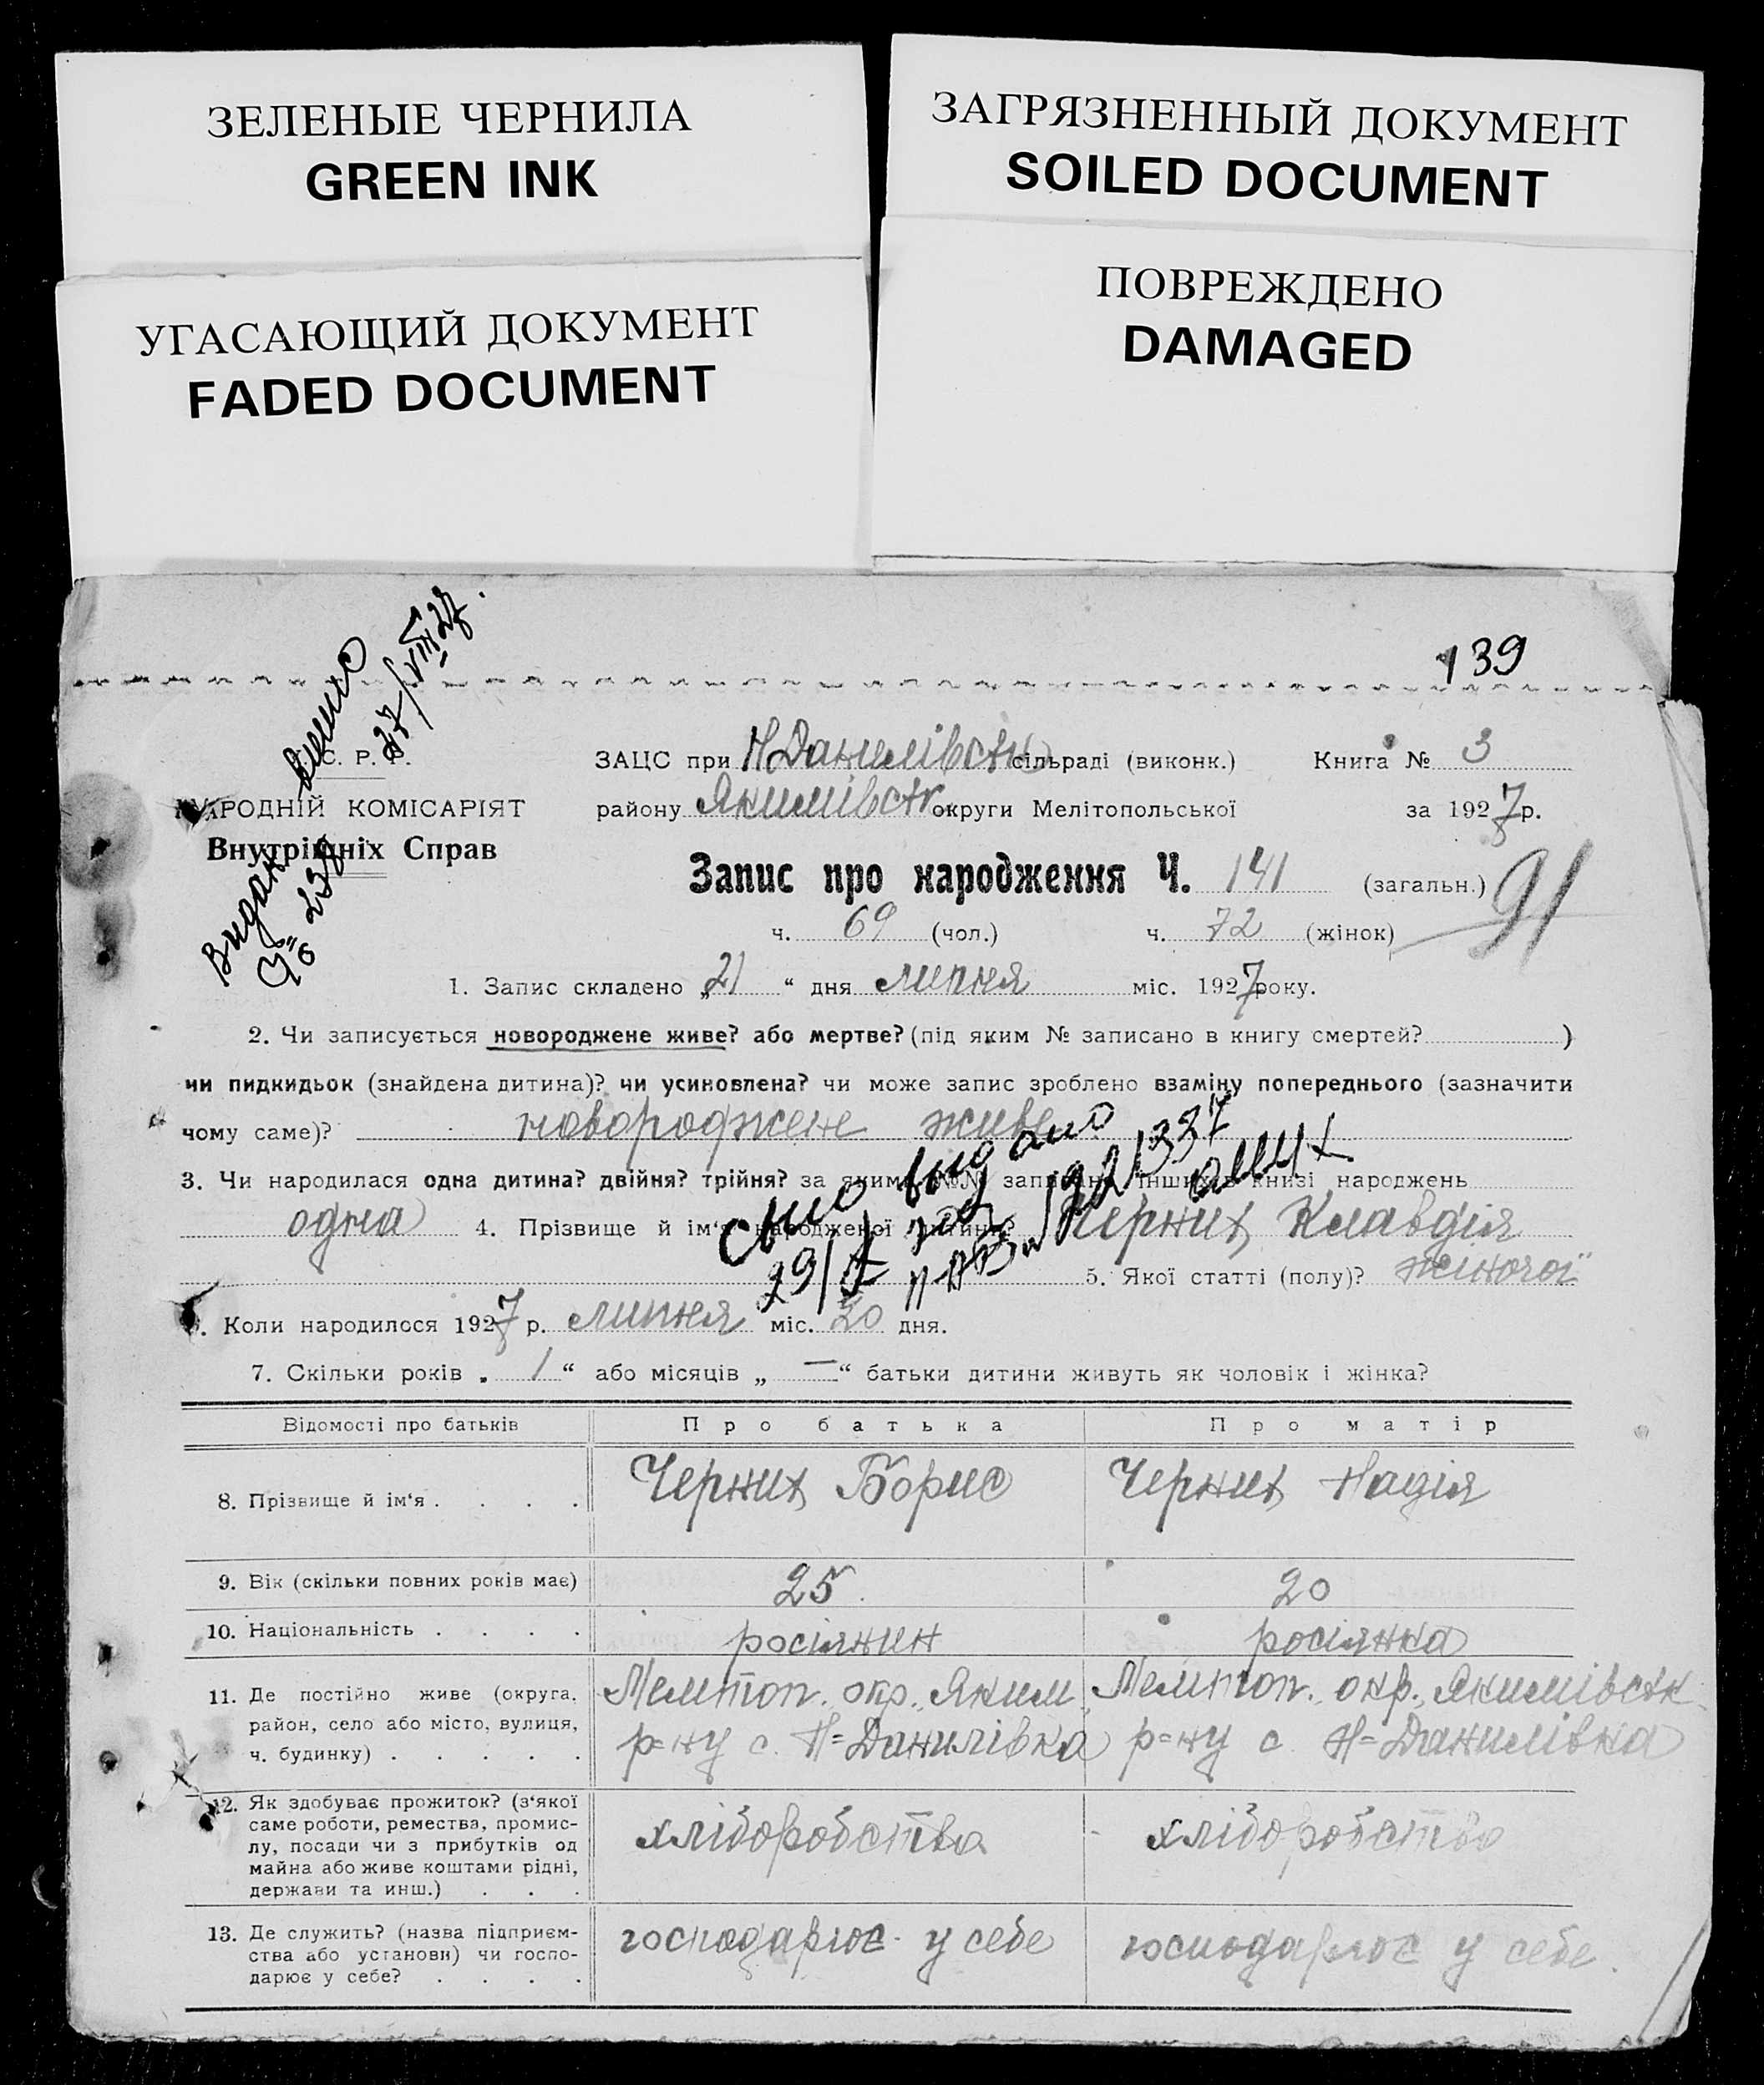 ЗЕЛЕНЫЕ ЧЕРНИЛА
GREEN INK
ЗАГРЯЗНЕННЫЙ ДОКУМЕНТ
SOILED DOCUMENT
УГАСАЮЩИЙ ДОКУМЕНТ
FADED DOCUMENT
ПОВРЕЖДЕНО
DAMAGED
139
27/VIII 27.
С. Р. Р.
ЗАЦС при Н Данилівськ сільраді (виконк.)
Книга № 3
НАРОДНІЙ КОМІСАРІЯТ
Внутрішніх Справ
району Якимівськ округи Мелітопольської
за 1927 р.
Запис про народження Ч. 141 (загальн.)
91
ч. 69 (чол.) ч. 72 (жінок)
1. Запис складено „21“ дня липня міс. 1927 року.
2. Чи записується новороджене живе? або мертве? (під яким № записано в книгу смертей? )
чи пидкидьок (знайдена дитина)? чи усиновлена? чи може запис зроблено взаміну попереднього (зазначити
чому саме)? новороджене живе
3. Чи народилася одна дитина? двійня? трійня? за якими №№ записано інших в книзі народжень
одна 4. Прізвище й ім‘я народженої дитини? Черних Клавдія
5. Якої статті (полу)? жіночої
6. Коли народилося 1927 р. липня міс. 20 дня.
7. Скільки років „ 1 “ або місяців „ — “ батьки дитини живуть як чоловік і жінка?
Відомості про батьків
Про батька
Про матір
8. Прізвище й ім‘я . . . .
Черних Борис
Черних Надія
9. Вік (скільки повних років має)
25
20
10. Національність . . . .
росіянин
росіянка
11. Де постійно живе (округа,
район, село або місто, вулиця,
ч. будинку) . . . . .
Мелітоп. окр. Яким
р=ну с. Н=Данилівка
Мелітоп. окр. Якимівськ
р=ну с. Н=Данилівка
12. Як здобуває прожиток? (з‘якої
саме роботи, ремества, промис-
лу, посади чи з прибутків од
майна або живе коштами рідні,
держави та инш.) . . .
хліборобство
хліборобство
13. Де служить? (назва підприєм-
ства або установи) чи госпо-
дарює у себе? . . . .
господарює у себе
господарює у себе.